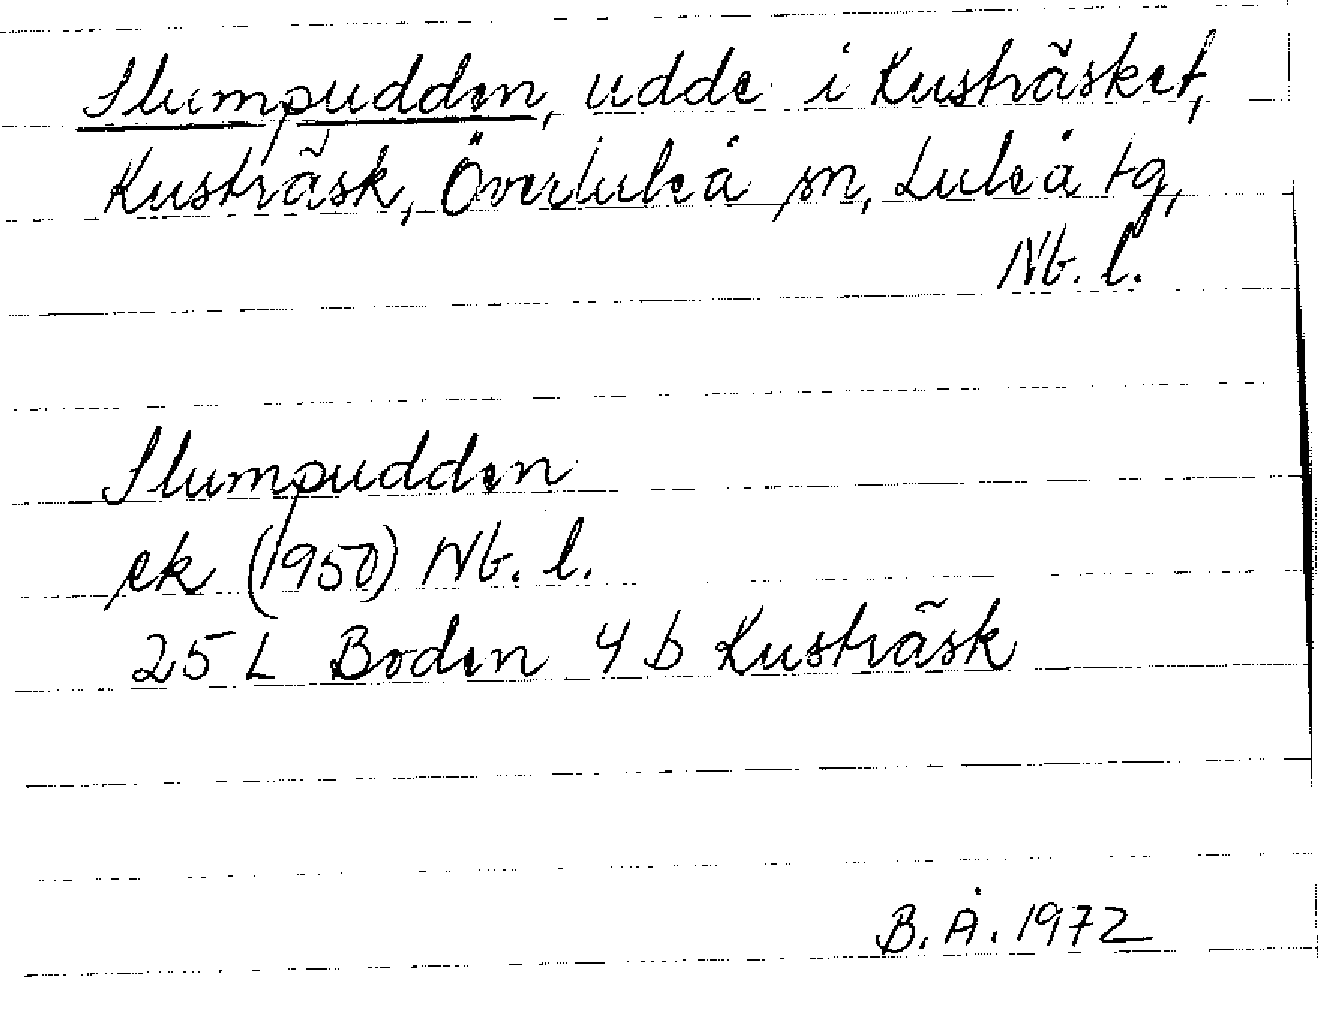 Slumpudden, udde i Kusträsket,
Kusträsk, Överluleå sn, Luleå tg,
Nb. l.
Slumpudden
ek (1950) Nb. l.
25 L Boden 4 b Kusträsk
B. Å. 1972